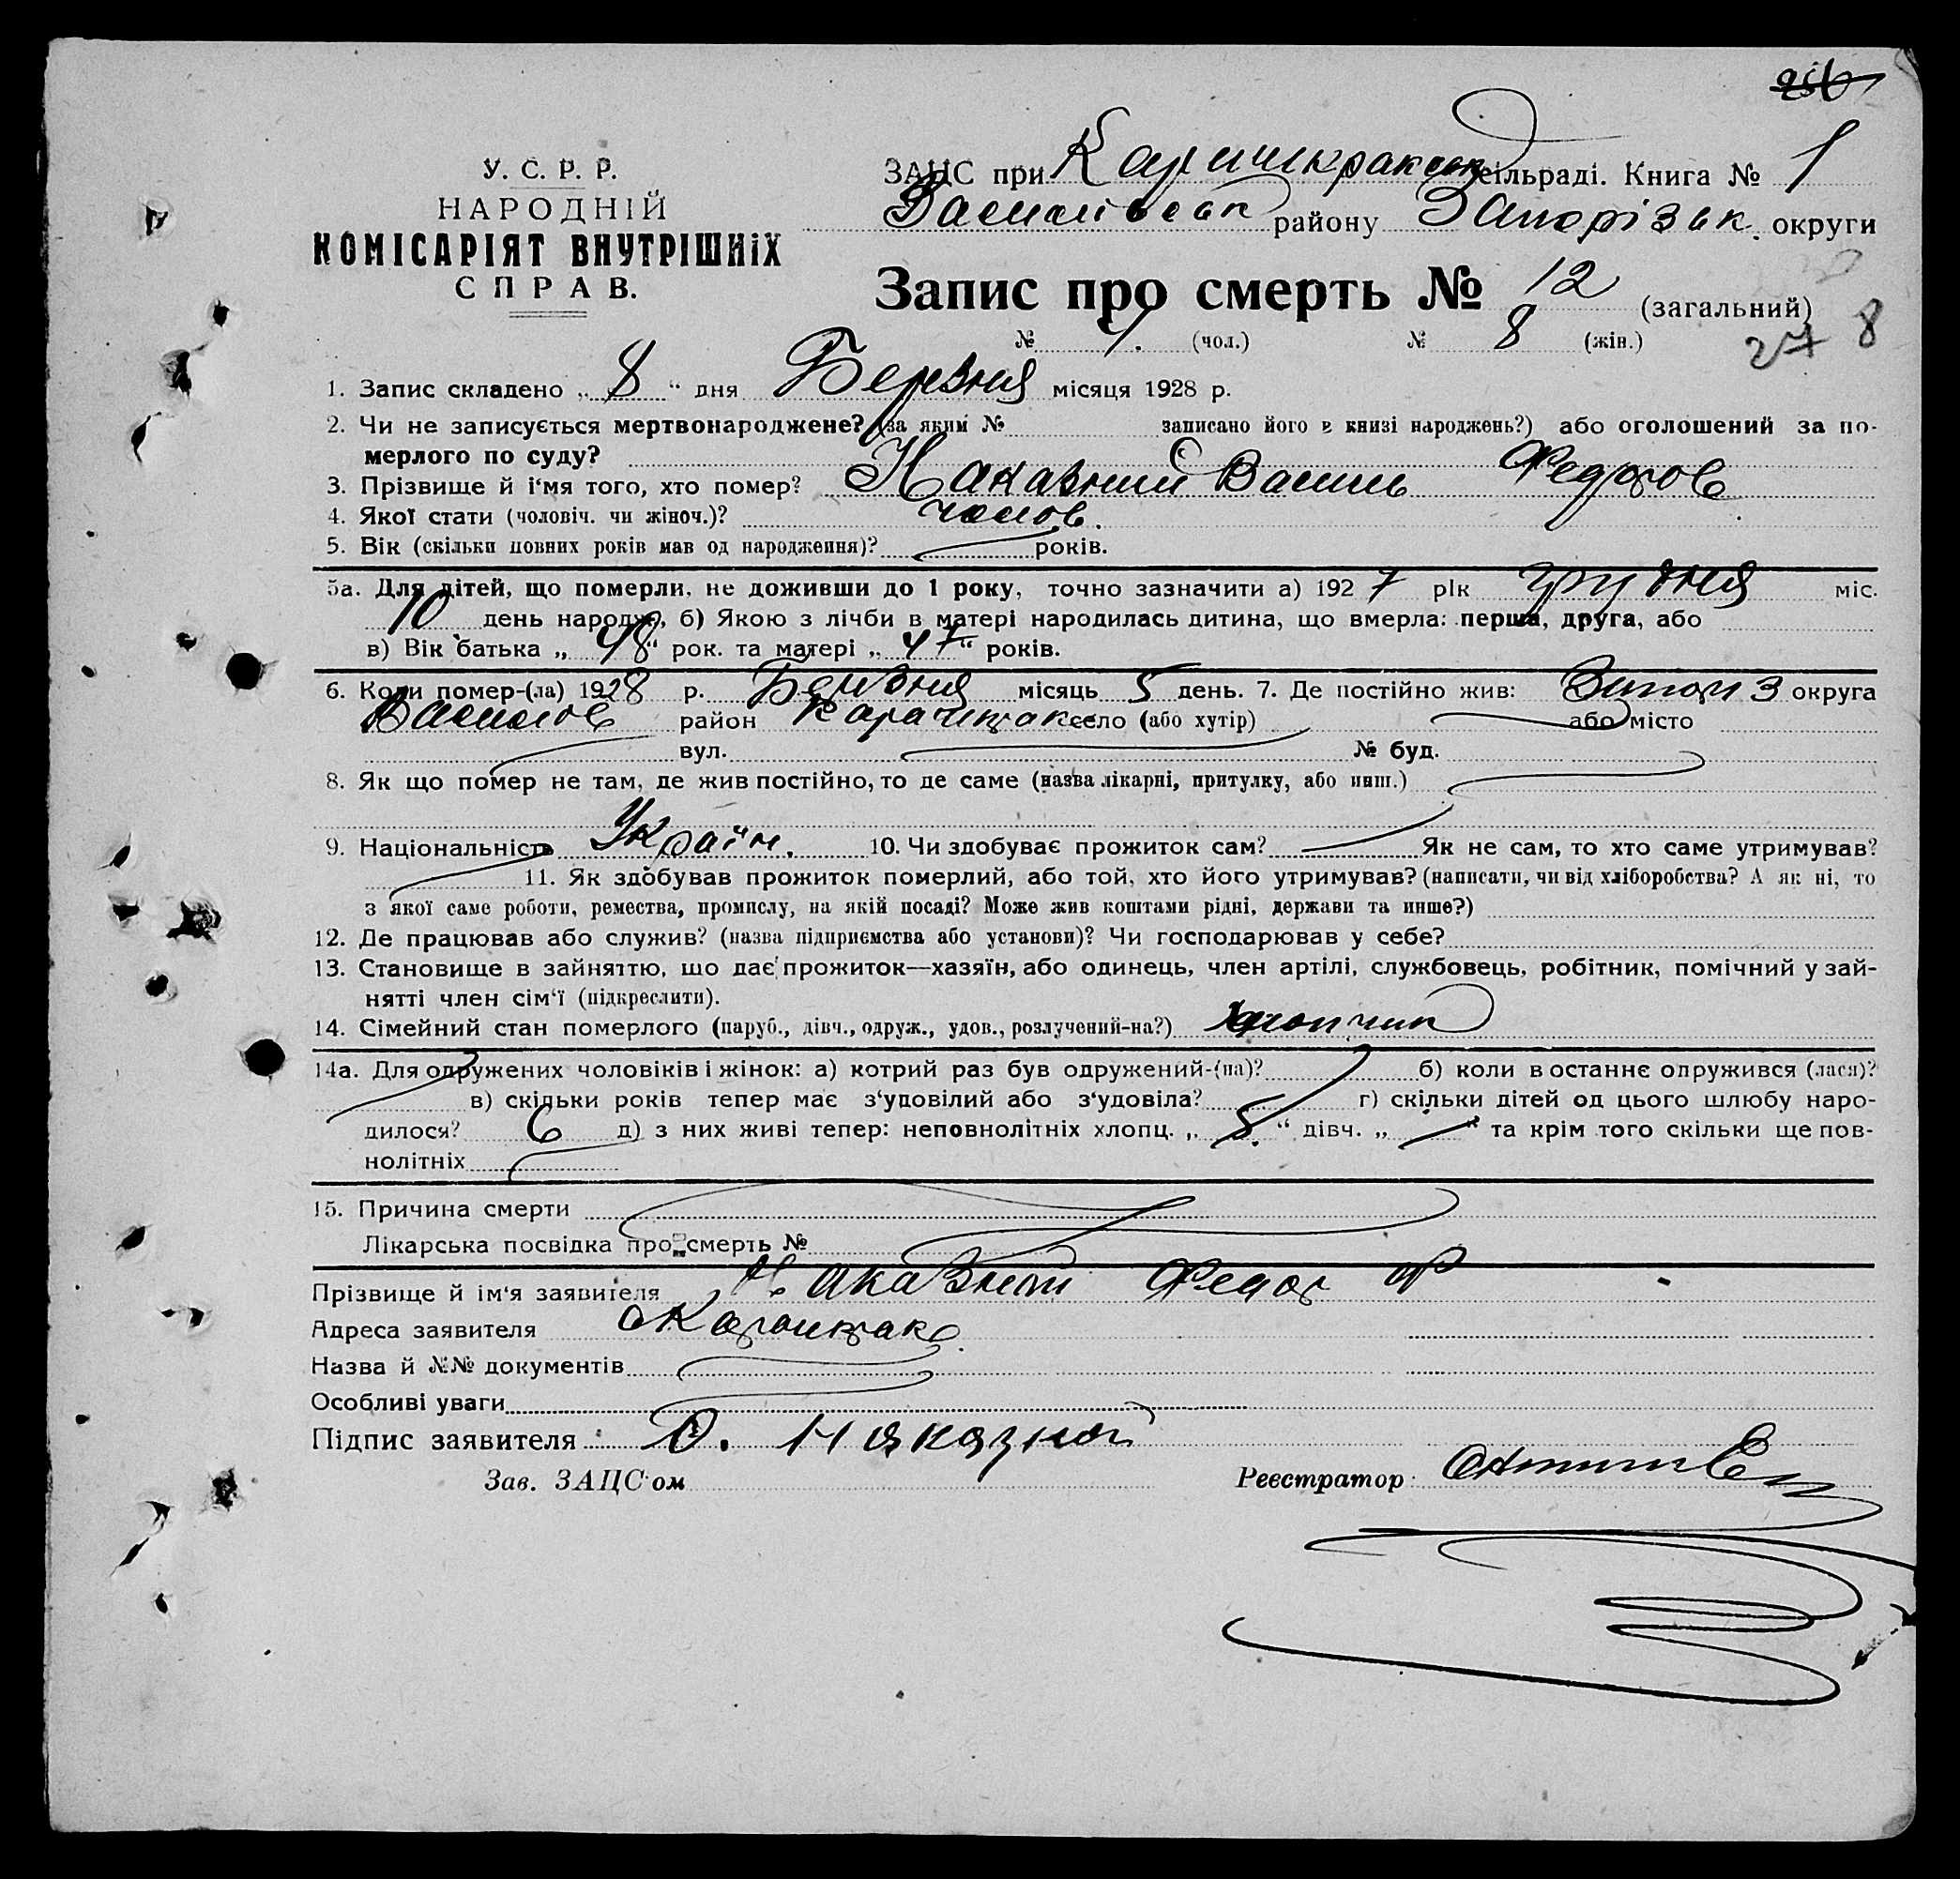 У. С. Р. Р.
НАРОДНІЙ
КОМІСАРІЯТ ВНУТРІШНІХ
СПРАВ.
ЗАЦС при сільраді. Книга № 1
Василівськ району Запорізьк. округи
Запис про смерть № 12 (загальний)
№ (чол.) № 8 (жін.)
27 8
1. Запис складено „ 8 “ дня Березня місяця 1928 р.
2. Чи не записується мертвонароджене? (за яким № записано його в книзі народжень?) або оголошений за по-
мерлого по суду?
3. Прізвище й і‘мя того, хто помер? Наказний Василь Федоров
4. Якої стати (чоловіч. чи жіноч.)? чолов.
5. Вік (скільки повних років мав од народження)? років.
5а. Для дітей, що померли, не доживши до 1 року, точно зазначити а) 1927 рік грудня міс.
10 день народж., б) Якою з лічби в матері народилась дитина, що вмерла: перша, друга, або
в) Вік батька „ 48 “ рок. та матері „ 47 “ років.
6. Коли помер-(ла) 1928 р. Березня місяць 5 день. 7. Де постійно жив: Запоріз округа
Василів район Карачикрак село (або хутір) або місто
вул. № буд.
8. Як що помер не там, де жив постійно, то де саме (назва лікарні, притулку, або инш.)
9. Національність Україн. 10. Чи здобуває прожиток сам? Як не сам, то хто саме утримував?
11. Як здобував прожиток померлий, або той, хто його утримував? (написати, чи від хліборобства? А як ні, то
з якої саме роботи, ремества, промислу, на якій посаді? Може жив коштами рідні, держави та инше?)
12. Де працював або служив? (назва підприємства або установи)? Чи господарював у себе?
13. Становище в зайняттю, що дає прожиток—хазяїн, або одинець, член артілі, службовець, робітник, помічний у зай-
нятті член сім‘ї (підкреслити).
14. Сімейний стан померлого (паруб., дівч., одруж., удов., розлучений-на?) хлопчик
14а. Для одружених чоловіків і жінок: а) котрий раз був одружений-(на)? б) коли востаннє одружився (лася)?
в) скільки років тепер має з‘удовілий або з‘удовіла? г) скільки дітей од цього шлюбу наро-
дилося? 6 д) з них живі тепер: неповнолітніх хлопц. „ 5. “ дівч. „ “ та крім того скільки ще пов-
нолітніх
15. Причина смерти
Лікарська посвідка про смерть №
Прізвище й ім‘я заявителя Наказний Федор Ф
Адреса заявителя с Карачикрак
Назва й №№ документів
Особливі уваги
Підпис заявителя Ф. Наказной
Зав. ЗАЦС‘ом Реєстратор